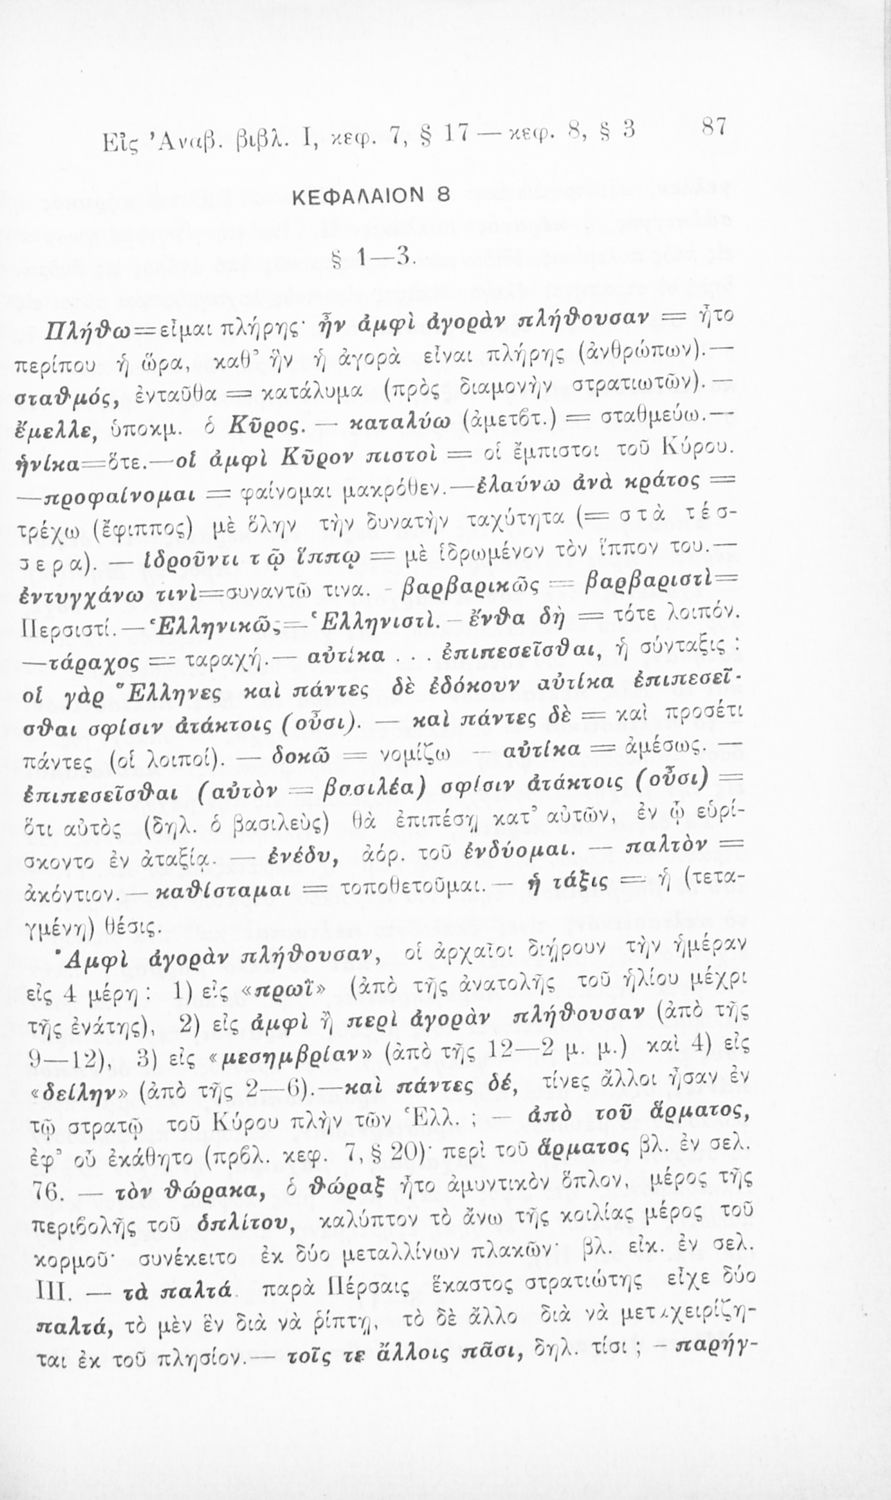 Εἰς Ἀναβ. βιβλ. I, κεφ. 7, § 17 — κεφ. 8, § 3 87
ΚΕΦΑΛΑΙΟΝ 8
§ 1—3.
Πλήθω=εἶμαι πλήρης· ἦν ἀμφὶ ἀγορὰν πλήθουσαν = ἦτο
περίπου ἡ ὥρα, καθ’ ἣν ἡ ἀγορὰ εἶναι πλήρης (ἀνθρώπων).—
σταθμός, ἐνταῦθα = κατάλυμα (πρὸς διαμονὴν στρατιωτῶν). —
ἔμελλε, ὑποκμ. ὁ Κῦρος. — καταλύω (ἀμετβτ.) = σταθμεύω.—
ἡνίκα=ὅτε.—οἱ ἀμφὶ Κῦρον πιστοὶ = οἱ ἔμπιστοι τοῦ Κύρου.
—προφαίνομαι = φαίνομαι μακρόθεν.—ἐλαύνω ἀνὰ κράτος =
τρέχω (ἔφιππος) μὲ ὅλην τὴν δυνατὴν ταχύτητα (= στὰ τέσ-
σερα). — ἱδροῦντι τῷ ἵππῳ = μὲ ἱδρωμένον τὸν ἵππον του.—
ἐντυγχάνω τινὶ=συναντῶ τινα. - βαρβαρικῶς = βαρβαριστὶ=
Περσιστί.—Ἑλληνικῶς=Ἑλληνιστὶ.— ἔνθα δὴ = τότε λοιπόν.
—τάραχος = ταραχή.— αὐτίκα . . . ἐπιπεσεῖσθαι, ἡ σύνταξις :
οἱ γὰρ Ἕλληνες καὶ πάντες δὲ ἐδόκουν αὐτίκα ἐπιπεσεῖ-
σθαι σφίσιν ἀτάκτοις (οὖσι). — καὶ πάντες δὲ = καὶ προσέτι
πάντες (οἱ λοιποί). — δοκῶ = νομίζω — αὐτίκα = ἀμέσως. —
ἐπιπεσεῖσθαι (αὐτὸν = βασιλέα) σφίσιν ἀτάκτοις (οὖσι) =
ὅτι αὐτὸς (δηλ. ὁ βασιλεὺς) θὰ ἐπιπέσῃ κατ’ αὐτῶν, ἐν ᾧ εὑρί-
σκοντο ἐν ἀταξίᾳ. — ἐνέδυ, ἀόρ. τοῦ ἐνδύομαι. — παλτὸν =
ἀκόντιον. — καθίσταμαι = τοποθετοῦμαι. — ἡ τάξις = ἡ (τετα-
γμένη) θέσις.
Ἀμφὶ ἀγορὰν πλήθουσαν, οἱ ἀρχαῖοι διῄρουν τὴν ἡμέραν
εἰς 4 μέρη : 1) εἰς «πρωῒ» (ἀπὸ τῆς ἀνατολῆς τοῦ ἡλίου μέχρι
τῆς ἐνάτης), 2) εἰς ἀμφὶ ἢ περὶ ἀγορὰν πλήθουσαν (ἀπὸ τῆς
9—12), 3) εἰς «μεσημβρίαν» (ἀπὸ τῆς 12—2 μ. μ.) καὶ 4) εἰς
«δείλην» (ἀπὸ τῆς 2—6).—καὶ πάντες δέ, τίνες ἄλλοι ἦσαν ἐν
τῷ στρατῷ τοῦ Κύρου πλὴν τῶν Ἑλλ. ; — ἀπὸ τοῦ ἅρματος,
ἐφ’ οὗ ἐκάθητο (πρβλ. κεφ. 7, § 20)· περὶ τοῦ ἅρματος βλ. ἐν σελ.
76. — τὸν θώρακα, ὁ θώραξ ἦτο ἀμυντικὸν ὅπλον, μέρος τῆς
περιβολῆς τοῦ ὁπλίτου, καλύπτον τὸ ἄνω τῆς κοιλίας μέρος τοῦ
κορμοῦ· συνέκειτο ἐκ δύο μεταλλίνων πλακῶν· βλ. εἰκ. ἐν σελ.
III. — τὰ παλτά. παρὰ Πέρσαις ἕκαστος στρατιώτης εἶχε δύο
παλτά, τὸ μὲν ἓν διὰ νὰ ῥίπτῃ, τὸ δὲ ἄλλο διὰ νὰ μεταχειρίζη-
ται ἐκ τοῦ πλησίον.— τοῖς τε ἄλλοις πᾶσι, δηλ. τίσι ; — παρήγ-